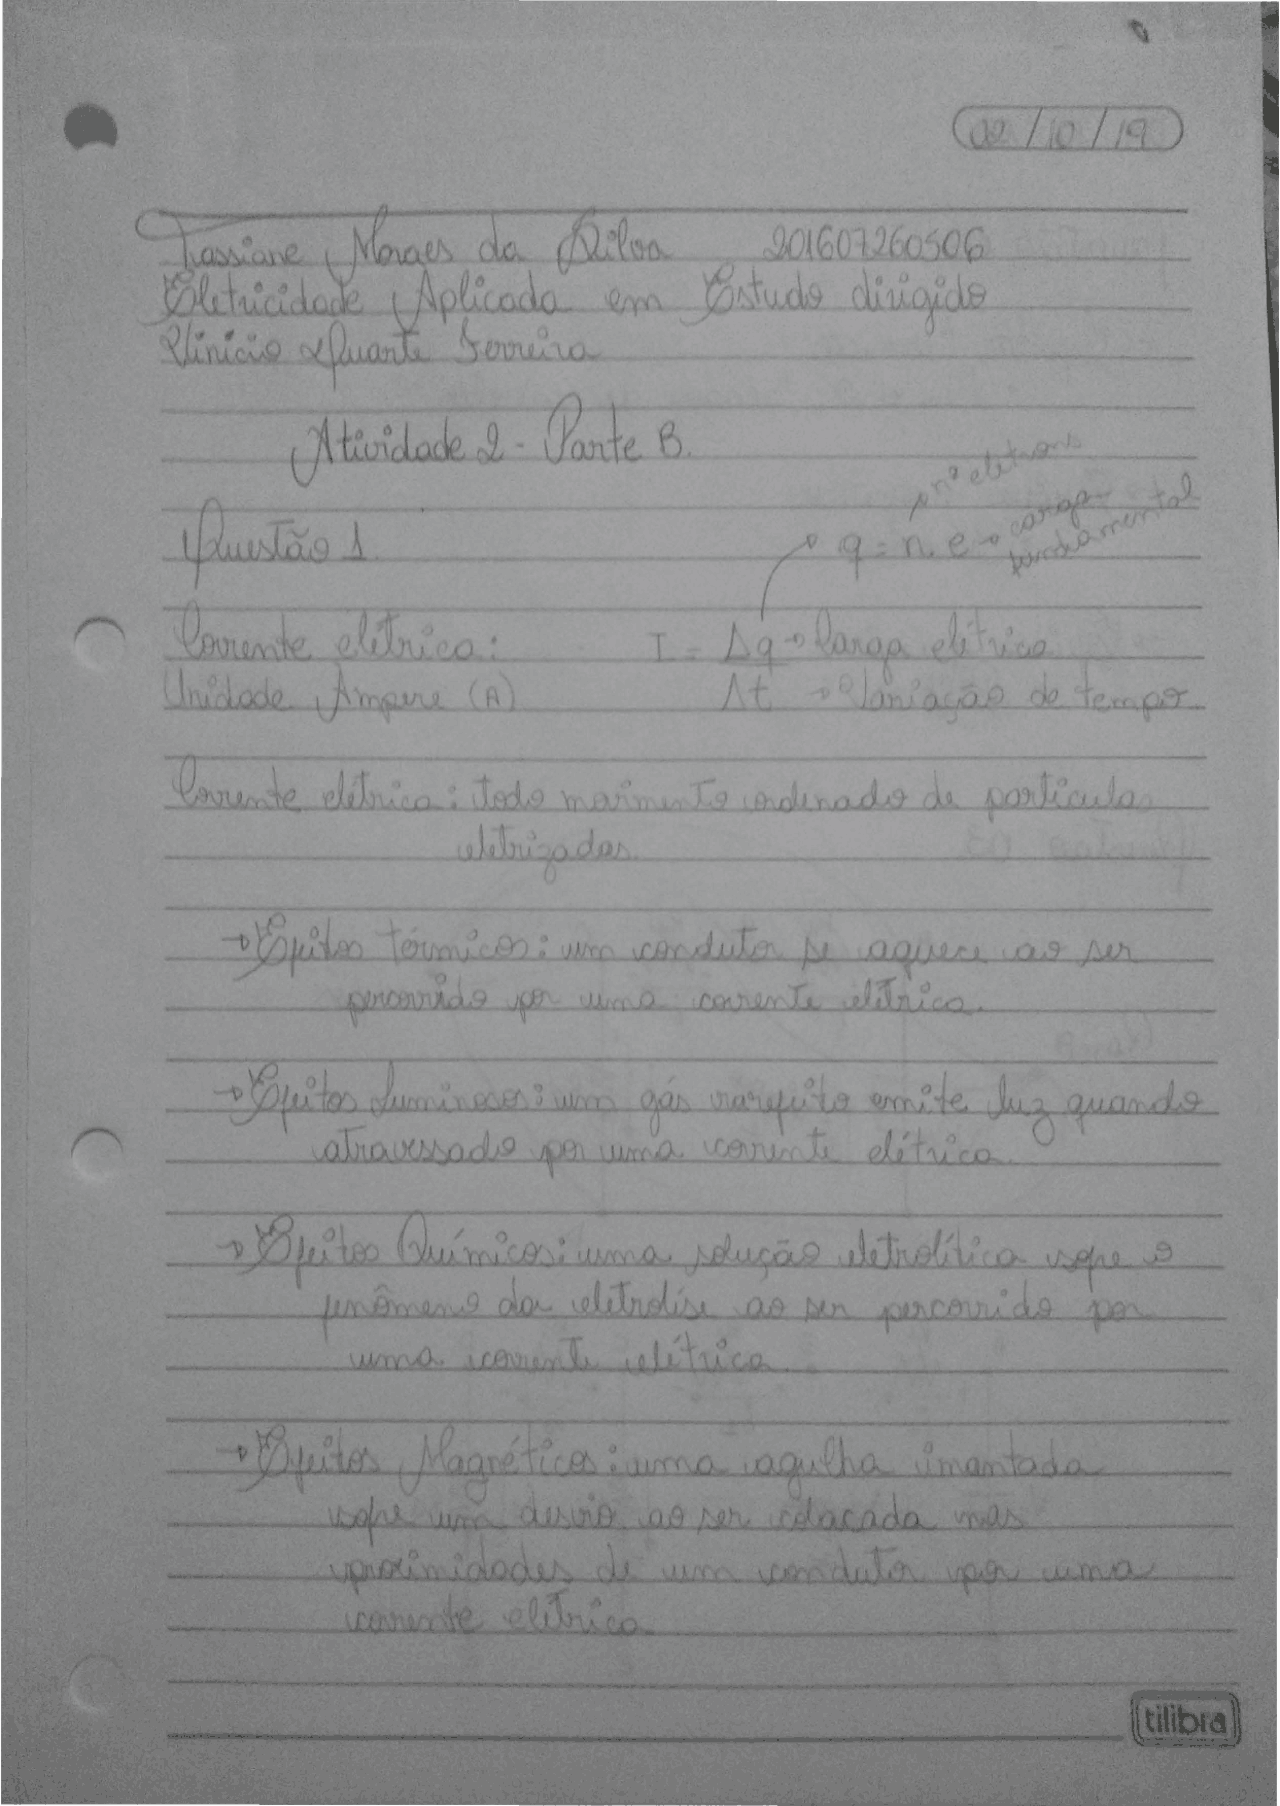 02/10/19
Tassiane Moraes da Silva 201607260506
Eletricidade Aplicada em Estudo dirigido
Vinicio Duarte Ferreira
Atividade 2 - Parte B.
nº eletrons
Questão 1. q = n. e → carga fundamental
Corrente elétrica: I = Δq → Carga elétrica
Unidade Ampere (A) Δt → Variação de tempo
Corrente elétrica: todo movimento ordenado de particulas
eletrizadas.
→ Efeitos térmicos: um condutor se aquece ao ser
percorrido por uma corrente elétrica.
→ Efeitos Luminosos: um gás rarefeito emite luz quando
atravessado por uma corrente elétrica.
→ Efeitos Químicos: uma solução eletrolítica sofre o
fenômeno da eletrolise ao ser percorrido por
uma corrente elétrica
→ Efeitos Magnéticos: uma agulha imantada
sofre um desvio ao ser colacada nas
proximidades de um condutor por uma
corrente elétrica
tilibra